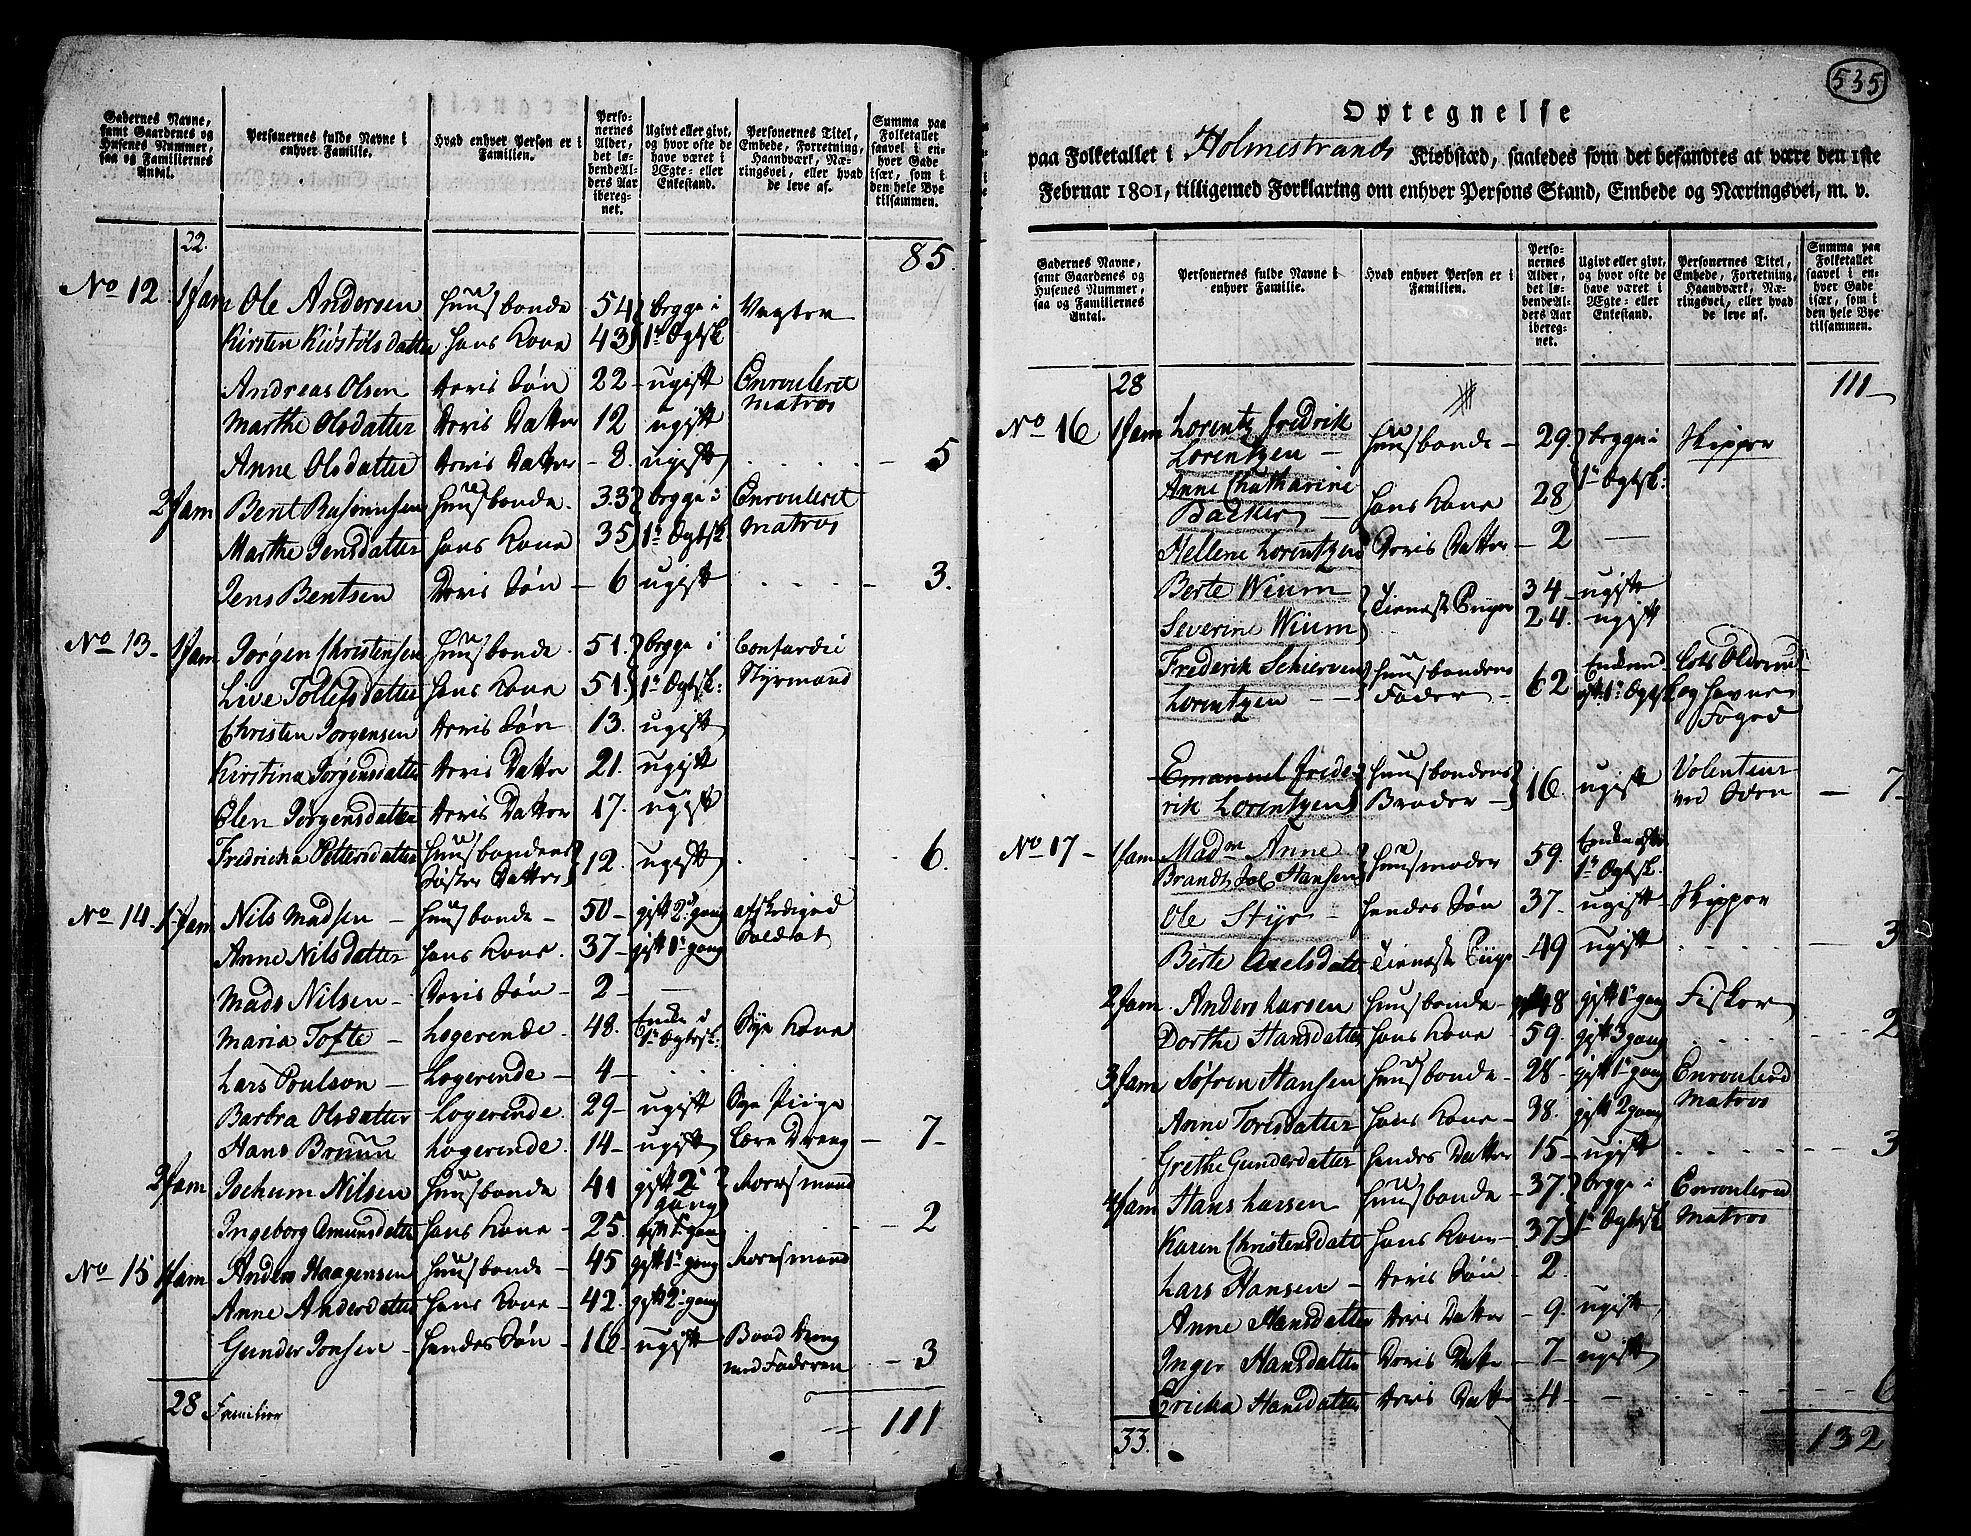 Gadernes Navne, samt Gaardenes og Husenes Nummer, saa og Familiernes Antal.
Personernes fulde Navne i enhver Familie.
Hvad enhver Person er i Familien.
Personernes Alder, det løbende Alders Aar iberegnet.
Ugivt eller givt, og hvor ofte de have været i Ægte- eller Enkestand.
Personernes Titel, Embede, Forretning, Haandværk, Næringsvei, eller hvad de leve af.
Summa paa Folketallet saavel i enhver Gade især, som i den hele Bye tilsammen.
22. 85.
No 12 1 fam Ole Andersen Huusbonde 54 begge i Vegter
Kirsten Kiøstolsdatter hans Kone 43 1te Ægtsk
Andreas Olsen deris Søn 22 - ugift Enrouleret Matros
Marthe Olsdatter deris Datter 12 ugift
Anne Olsdatter deris Datter - 8. ugift - 5
2 fam Bent Rasmusen Huusbonde. 33 begge i Enrouleret
Marthe Jensdatter hans Kone 35 1te Ægtsk Matros
Jens Bentsen Deris Søn - 6 ugift - 3.
No 13 - 1 fam Jørgen Christensen Huusbonde. 51. begge i
Live Tollefsdatter hans Kone 51. 1te Ægtsk: Styrmand
Christen Jørgensen deris Søn 13. ugift
Kirstina Jørgensdatter deris Datter 21. ugift
Elen Jørgensdatter deris Datter 17. ugift
Fredricka Pettersdatter Huusbondens Søster Datter 12. ugift 6.
No 14. 1 fam Nils Madsen - Huusbonde - 50 - gift 2den gang afskediged
Anne Nilsdatter hans Kone. 37 - gift 1te gang Soldat
Mads Nilsen - Deris Søn - 2 -
Maria Tofte - Logerende. 48. Enke i 1te Ægtesk: Sye Kone
Lars Poulson - Logerende - 4 -
Barbra Olsdatter Logerende. 29 - ugift Sye Piige
Hans Bruun Logerende. 14 - ugift Lære Dreng - 7 -
2 fam Jochum Nilsen Huusbonde 41 gift 2 gang Roersmand
Ingeborg Amundsdatter hans Kone - 25. gift 1te gang - 2
No 15 1 fam Anders Haagensen Huusbonde - 45 gift 1te gang Roersmand
Anne Andersdatter hans Kone - 42. gift 2 gang
Gunder Jonsen - hendes Søn - 16 - ugift Baad Dreng med Faderen - 3
28 Familier 111
535
Optegnelse
paa Folketallet i Holmestrands Kiøbstæd, saaledes som det befandtes at være den 1ste
Februar 1801, tilligemed Forklaring om enhver Persons Stand, Embede og Næringsvei, m. v.
Gadernes Navne, samt Gaardenes og Husenes Nummer, saa og Familiernes Antal.
Personernes fulde Navne i enhver Familie.
Hvad enhver Person er i Familien.
Personernes Alder, det løbende Alders Aar iberegnet.
Ugivt eller givt, og hvor ofte de have været i Ægte- eller Enkestand.
Personernes Titel, Embede, Forretning, Haandværk, Næringsvei, eller hvad de leve af.
Summa paa Folketallet saavel i enhver Gade især, som i den hele Bye tilsammen.
28 111
No 16 1 fam Lorentz Fredrik Lorentzen - Huusbonde - 29. begge i Skipper
Anne Chatharine Backer - hans Kone 28 1te Ægtsk:
Hellene Lorentzen Deris Datter - 2 -
Berte Wium Tieneste Piiger 34 - ugift
Severine Wium 24. ugift
Frederik Schierven Lorentzen - Huusbondens Fader - 62 Enkemand gift 1te Ægtsk Lots Oldermand og Havne Foged
Emanuel Frederik Lorentzen Huusbondens Broder - 16. ugift Volentair ved Søen - 7 -
No 17 - 1 fam Madm Anne Brandt Sal Hansens Huusmoder 59. Enke efter 1te Ægtsk.
Ole Styr - hendes Søn 37. ugift - Skipper
Berte Axelsdatter Tieneste Piige - 49 ugift 3
2 fam Anders Larsen Huusbonde - 48 gift 1te gang Fisker
Dorthe Hansdatter hans Kone 59. gift 3 gang 2
3 fam Søfren Hansen Huusbonde - 28 - gift 1te gang Enroulered
Anne Torisdatter hans Kone - 38. gift 2 gang Matros
Grethe Gundersdatter hendes Datter 15 - ugift 3
4 fam Hans Larsen Huusbonde - 37. begge i Enroulered
Karen Christensdatt hans Kone - 37 1te Ægtesk Matros
Lars Hansen - deris Søn - 2.
Anne Hansdatter deris Datter - 9. ugift
Inger Hansdatter Deris Datter - 7 - ugift
Ericka Hansdatter deris Datter - 4 - 6
33. 132